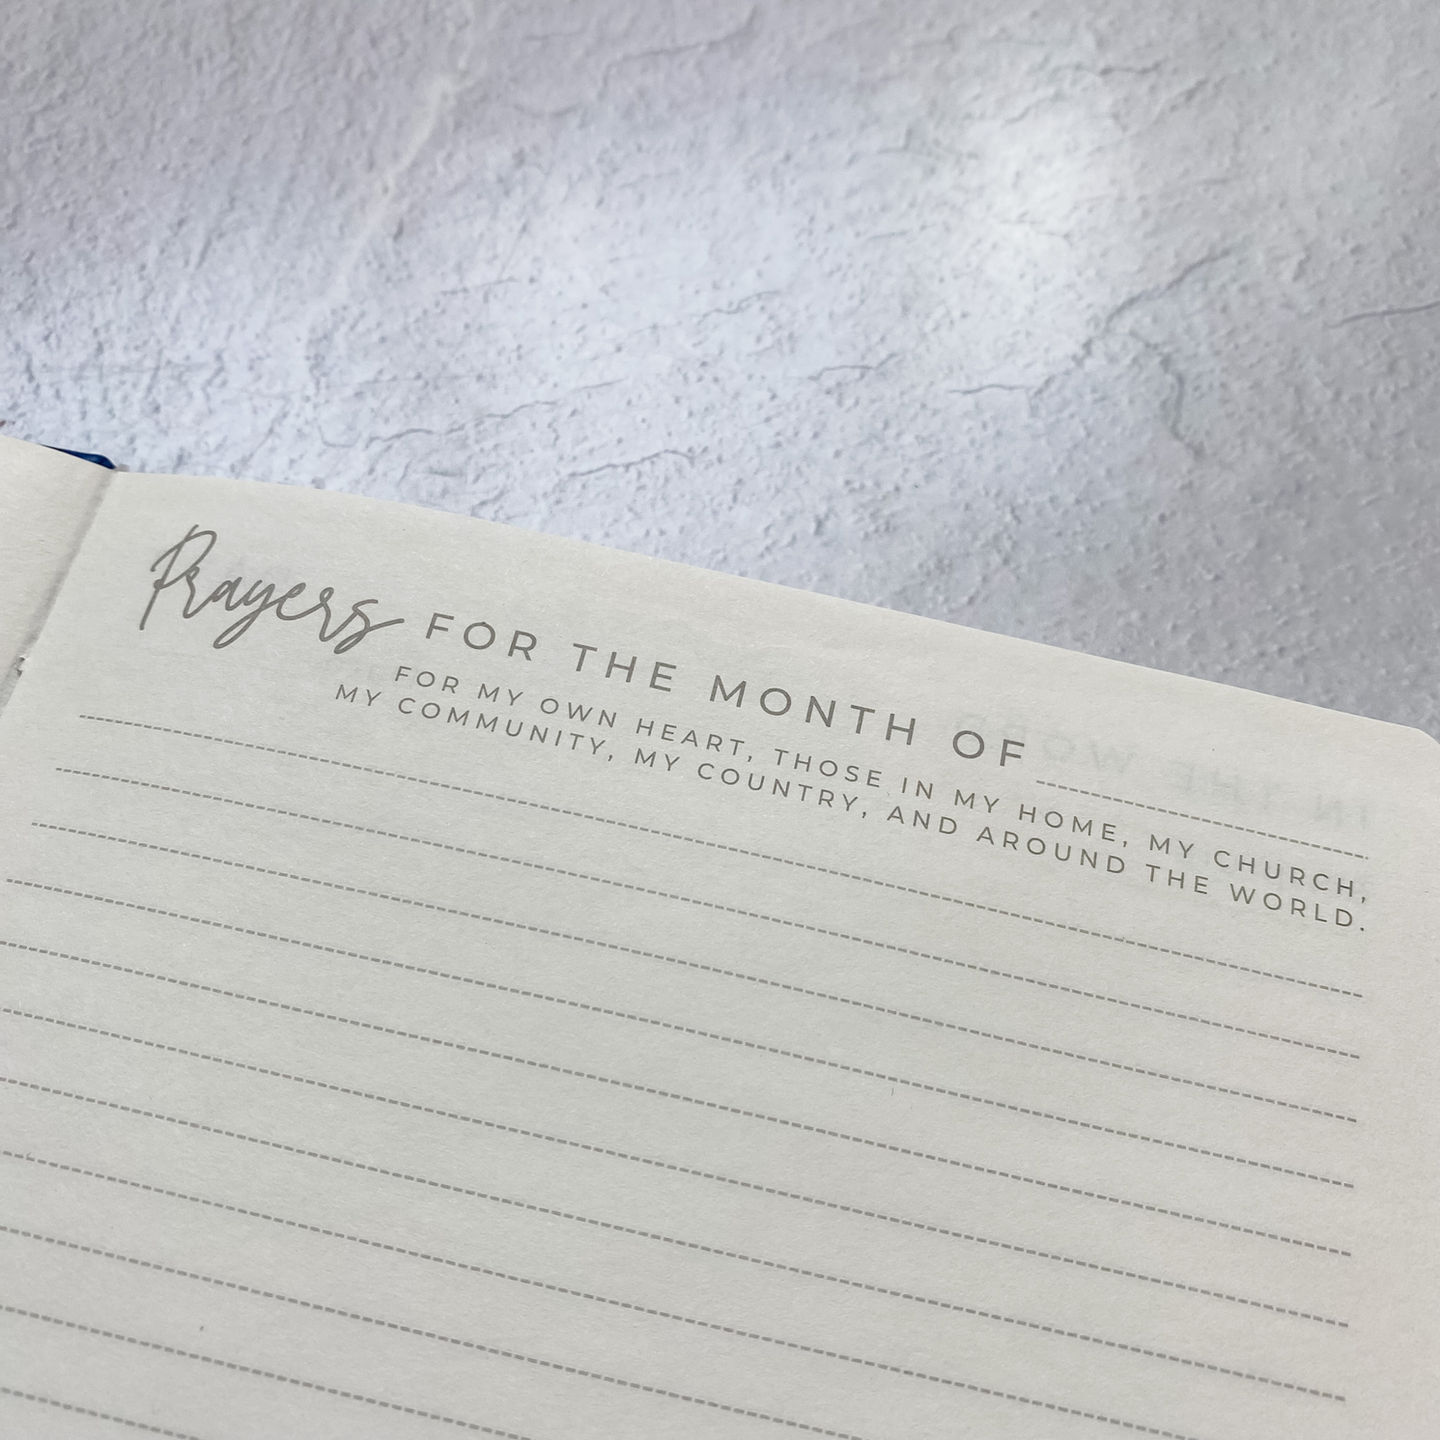 Prayers FOR THE MONTH OF
FOR MY OWN HEART, THOSE IN MY HOME, MY CHURCH,
MY COMMUNITY, MY COUNTRY, AND AROUND THE WORLD.